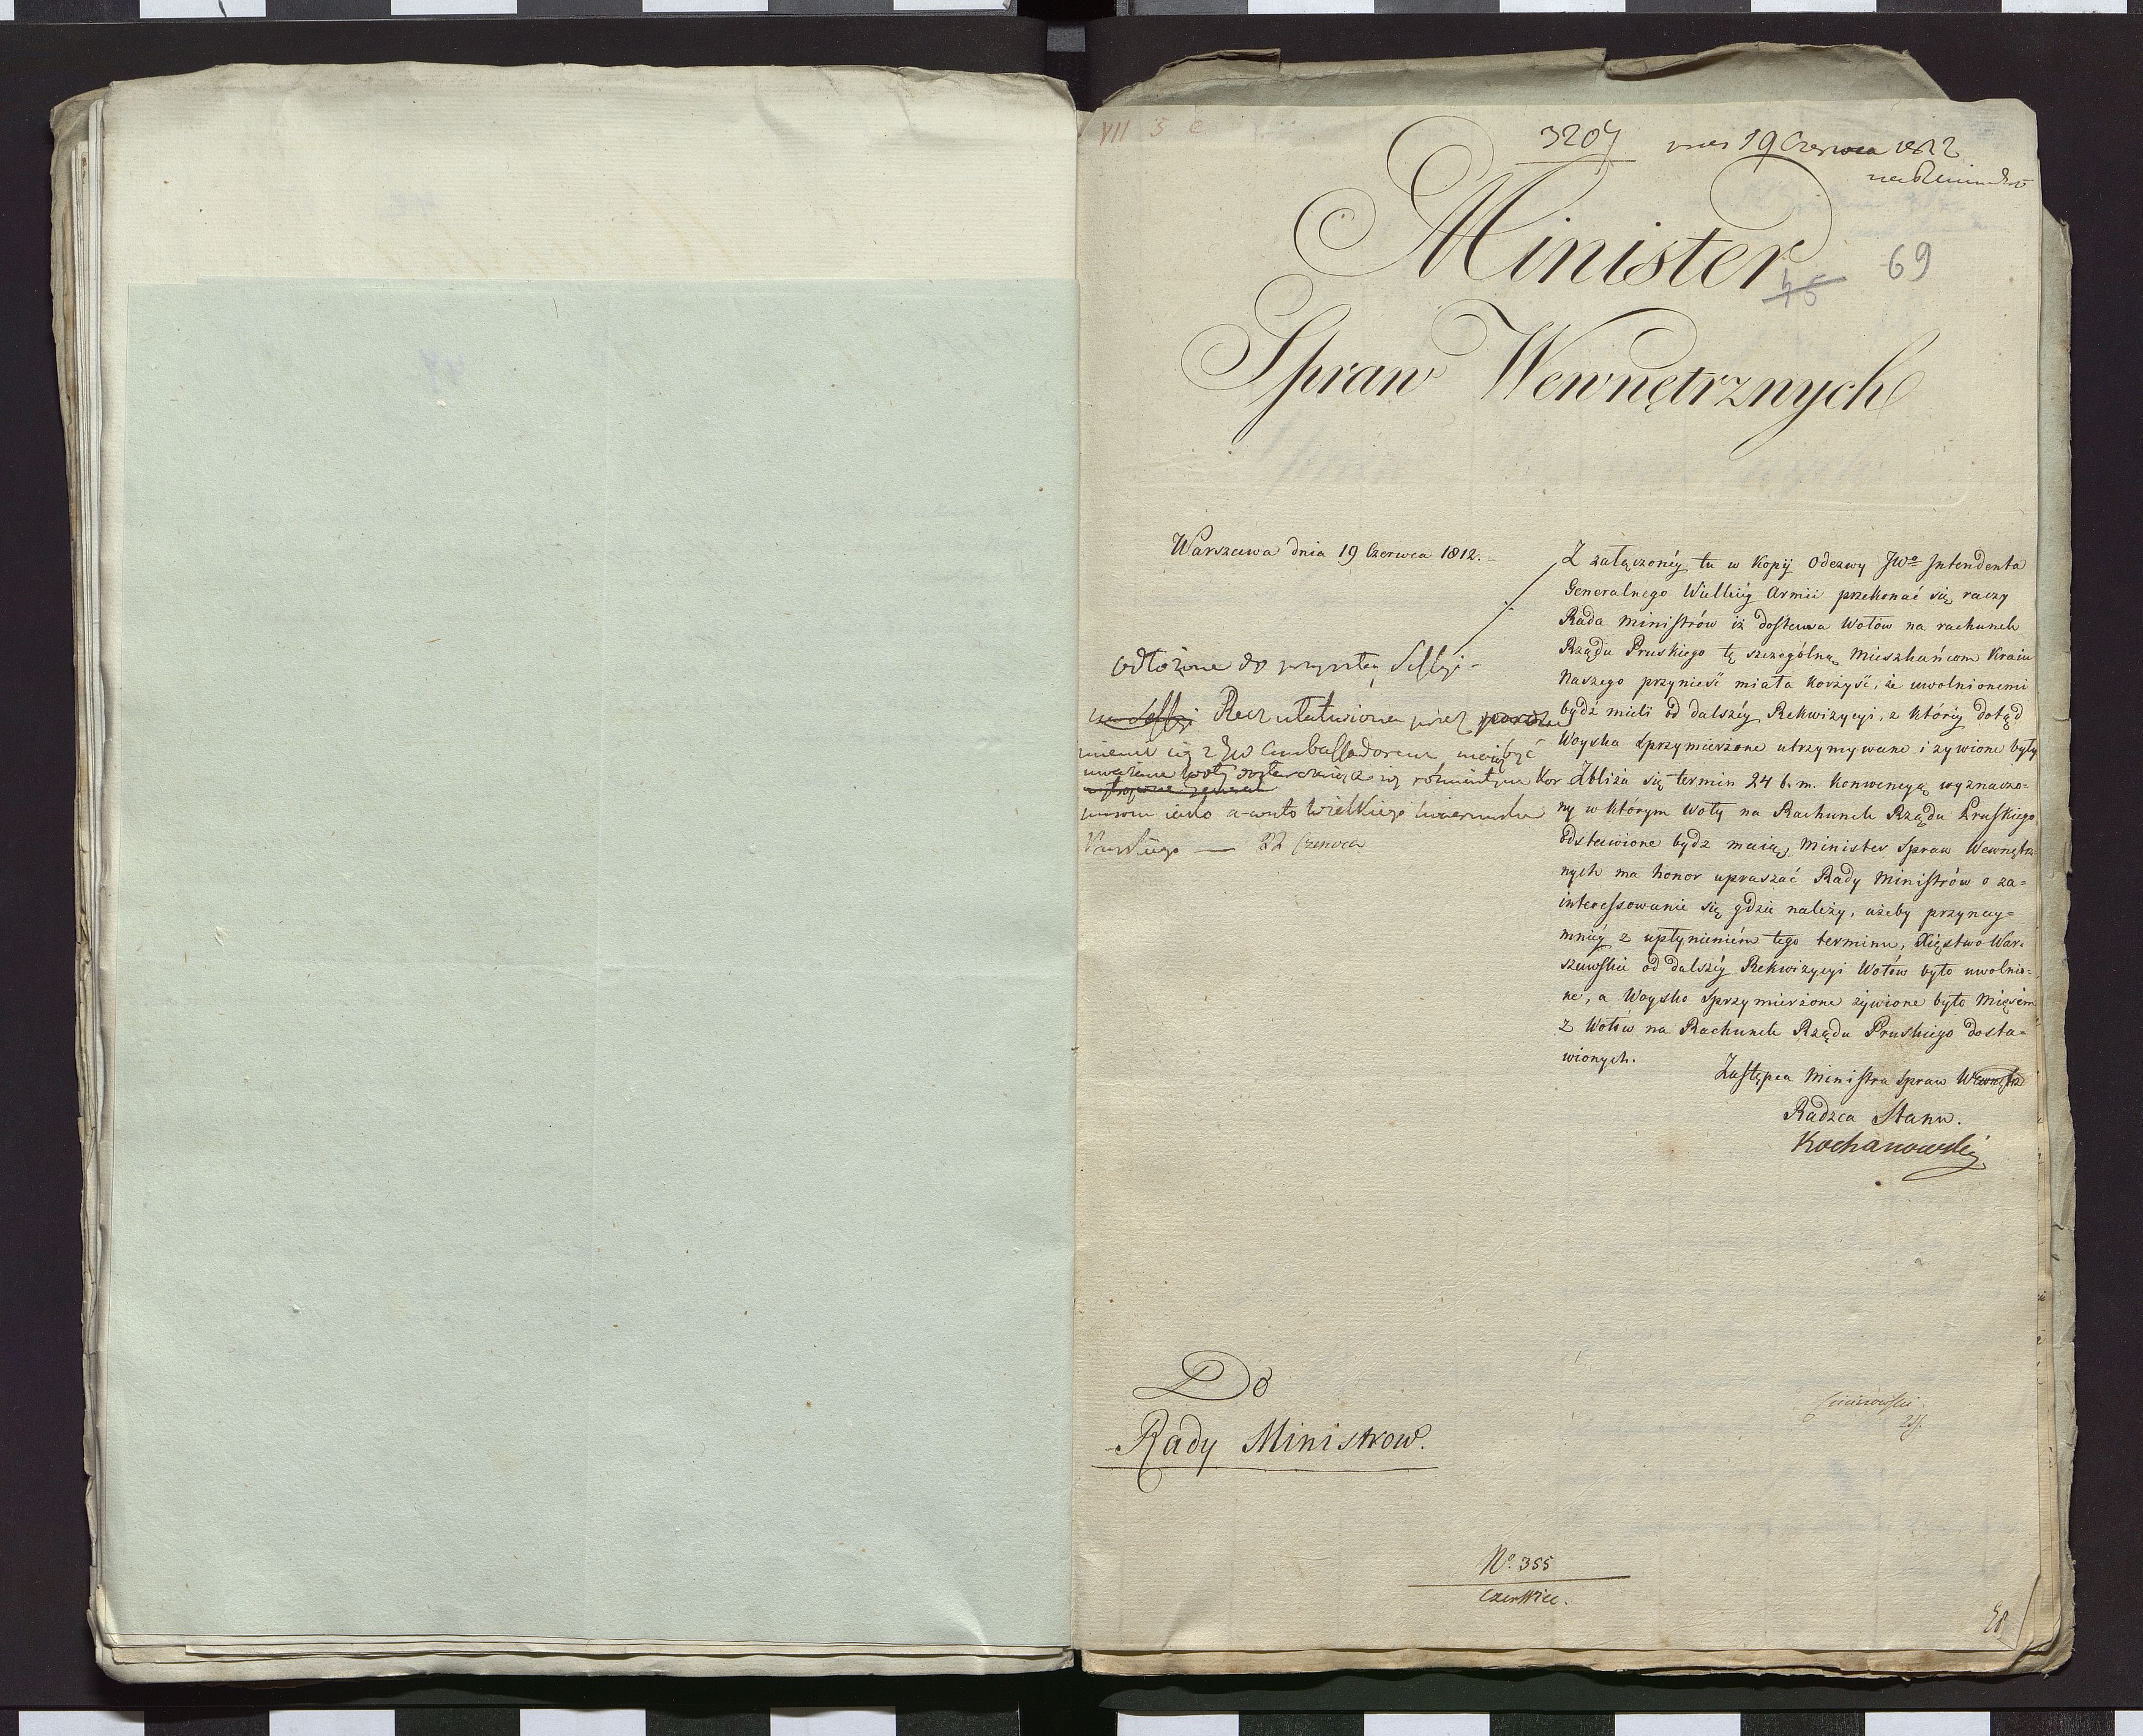 VII 5 c
3204 19 Czerwca 1812
Minister
45 69
Spraw Wewnętrznych
Warszawa dnia 19 Czerwca 1812.
odłożone do przyszłey Sessyi -
na Sessyi Rzecz ułatwiona przez
się z JW Ambassadorem, maią być
uważane woły
iako a conto Wielkiego
Pruskiego — 22 Czerwca
Z załączonéy tu w Kopij Odezwy JWo Intendenta
Generalnego Wielkiéy Armii przekonać się raczy
Rada Ministrów iż dostawa Wołów na rachunek
Rządu Pruskiego tę szczególną Mieszkańcom Kraiu
Naszego przynieść miała korzyść, że uwolnionemi
bydź mieli od dalszéy Rekwizycyi, z któréy dotąd
Woyska Sprzymierzone utrzymywane i żywione były
Zbliża się termin 24 b. m. Konwencyą wyznaczo=
ny w którym Woły na Rachunek Rządu Pruskiego
odstawione bydź maią, Minister Spraw Wewnętrz=
nych ma honor upraszać Rady Ministrów o za=
interessowanie się gdzie należy, ażeby przynay=
mniéy z upłynieniém tego terminu, Xięstwo War=
szawskie od dalszéy Rekwizycyi Wołów było uwolnio=
ne, a Woysko Sprzymierzone żywione było Mięsem
z Wołów na Rachunek Rządu Pruskiego dosta=
wionych.
Zastępca Ministra Spraw Wewnętrz
Radzca Stanu.
Kochanowski
Do
Rady Ministrow.
No. 355
Czerwiec.